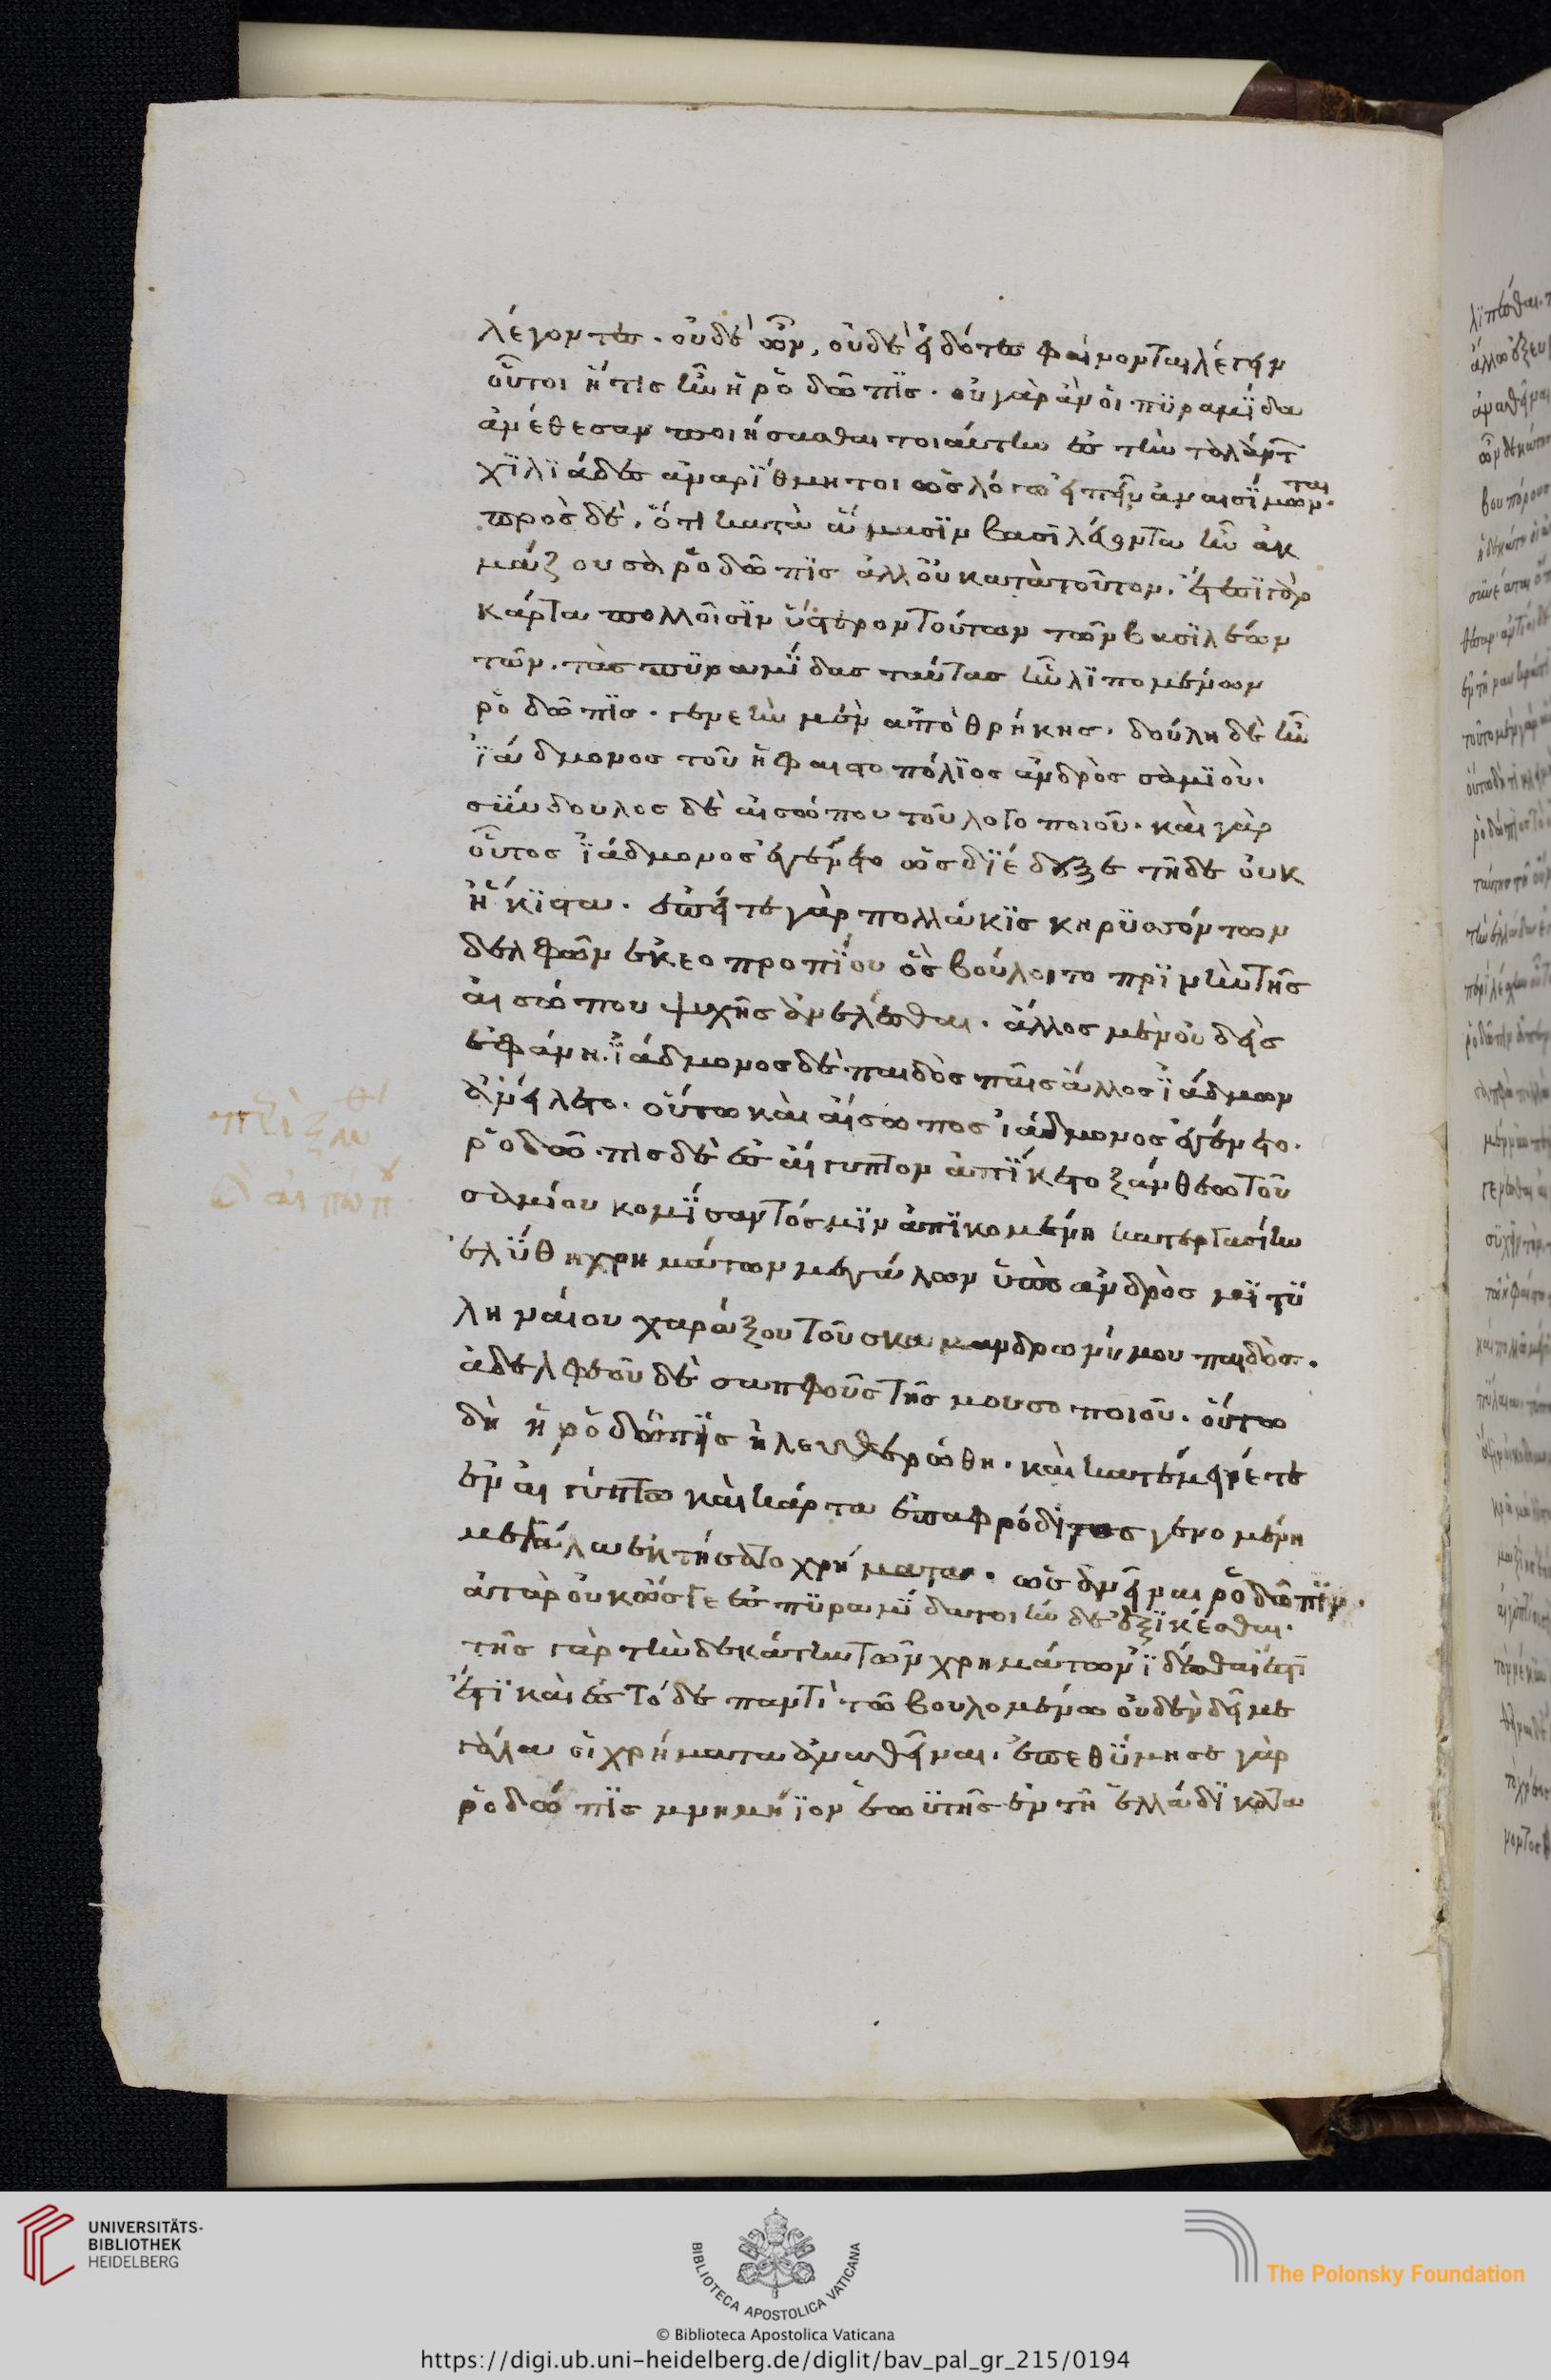 λέγοντες. οὐδὲ ὦν, οὐδὲ εἰδότες φαίνονται λέγειν
οὗτοι ἥτις ἦν ἡ ῥοδῶπις. οὐ γὰρ ἄν οἱ πυραμίδα
ἀνέθεσαν ποιήσασθαι τοιαύτην ἐς τὴν ταλάντ
χιλιάδες ἀναρίθμητοι ὡς λόγω εἰπεῖν ἀναισίμωνται.
πρὸς δὲ, ὅτι κατὰ ἄμασιν βασιλεύοντα ἦν ἀκ
μάζουσα ῥοδῶπις ἀλλ' οὐ κατὰ τοῦτον. ἔτεσι γὰρ
κάρτα πολλοῖσιν ὕστερον τούτων τῶν βασιλέων
τῶν. τὰς πυραμίδας ταύτας ἦν λιπομένων
ῥοδῶπις. γενεὴν μὲν ἀπὸ θρήκης. δούλη δὲ ἦν
ἰάδμονος τοῦ ἡφαιστοπόλιος ἀνδρὸς σαμίου.
σύνδουλος δὲ αἰσώπου τοῦ λογοποιοῦ. καὶ γὰρ
οὗτος ἰάδμονος ἐγένετο ὡς διέδεξε τῆδε οὐκ
ἥκιστα. ἐπεί τε γὰρ πολλάκις κηρυσσόντων
δελφῶν ἐκ θεοπροπίου ὃς βούλοιτο ποινὴν τῆς
αἰσώπου ψυχῆς ἀνελέσθαι. ἄλλος μὲν οὐδεὶς
ἐφάνη. ἰάδμονος δὲ παιδὸς παῖς ἄλλος ἰάδμων
ἀνείλετο. οὕτω καὶ αἴσωπος ἰάδμονος ἐγένετο.
ῥοδῶπις δὲ ἐς αἴγυπτον ἀπίκετο ξάνθεω τοῦ
σαμίου κομίσαντός μιν ἀπικομένη κατ' ἐργασίην
ἐλύθη χρημάτων μεγάλων ὑπὸ ἀνδρὸς μιτυ
ληναίου χαράξου τοῦ σκαμανδρωνύμου παιδὸς.
ἀδελφεοῦ δὲ σαπφοῦς τῆς μουσοποιοῦ. οὕτω
δὴ ἡ ῥοδῶπις ἠλευθερώθη. καὶ κατέμεινέ τε
ἐν αἰγύπτω καὶ κάρτα ἐπαφρόδιτος γενομένη
μεγάλα ἐκτήσατο χρήματα. ὡς ἂν εἶναι ῥοδῶπιν.
ἀτὰρ οὐκ ὥστε ἐς πυραμίδα τοιήνδε ἐξικέσθαι.
τῆς γὰρ τὴν δεκάτην τῶν χρημάτων ἰδέσθαι ἐστὶ
ἔτι καὶ ἐς τόδε παντὶ τῶ βουλομένω οὐδὲν δεῖ με
γάλα οἱ χρήματα ἀναθεῖναι. ἐπεθύμησε γὰρ
ῥοδῶπις μνημήϊον ἑωυτῆς ἐν τῆ ἑλλάδι κατα
UNIVERSITÄTS-
BIBLIOTHEK
HEIDELBERG
BIBLIOTECA APOSTOLICA VATICANA
The Polonsky Foundation
© Biblioteca Apostolica Vaticana
https://digi.ub.uni-heidelberg.de/diglit/bav_pal_gr_215/0194